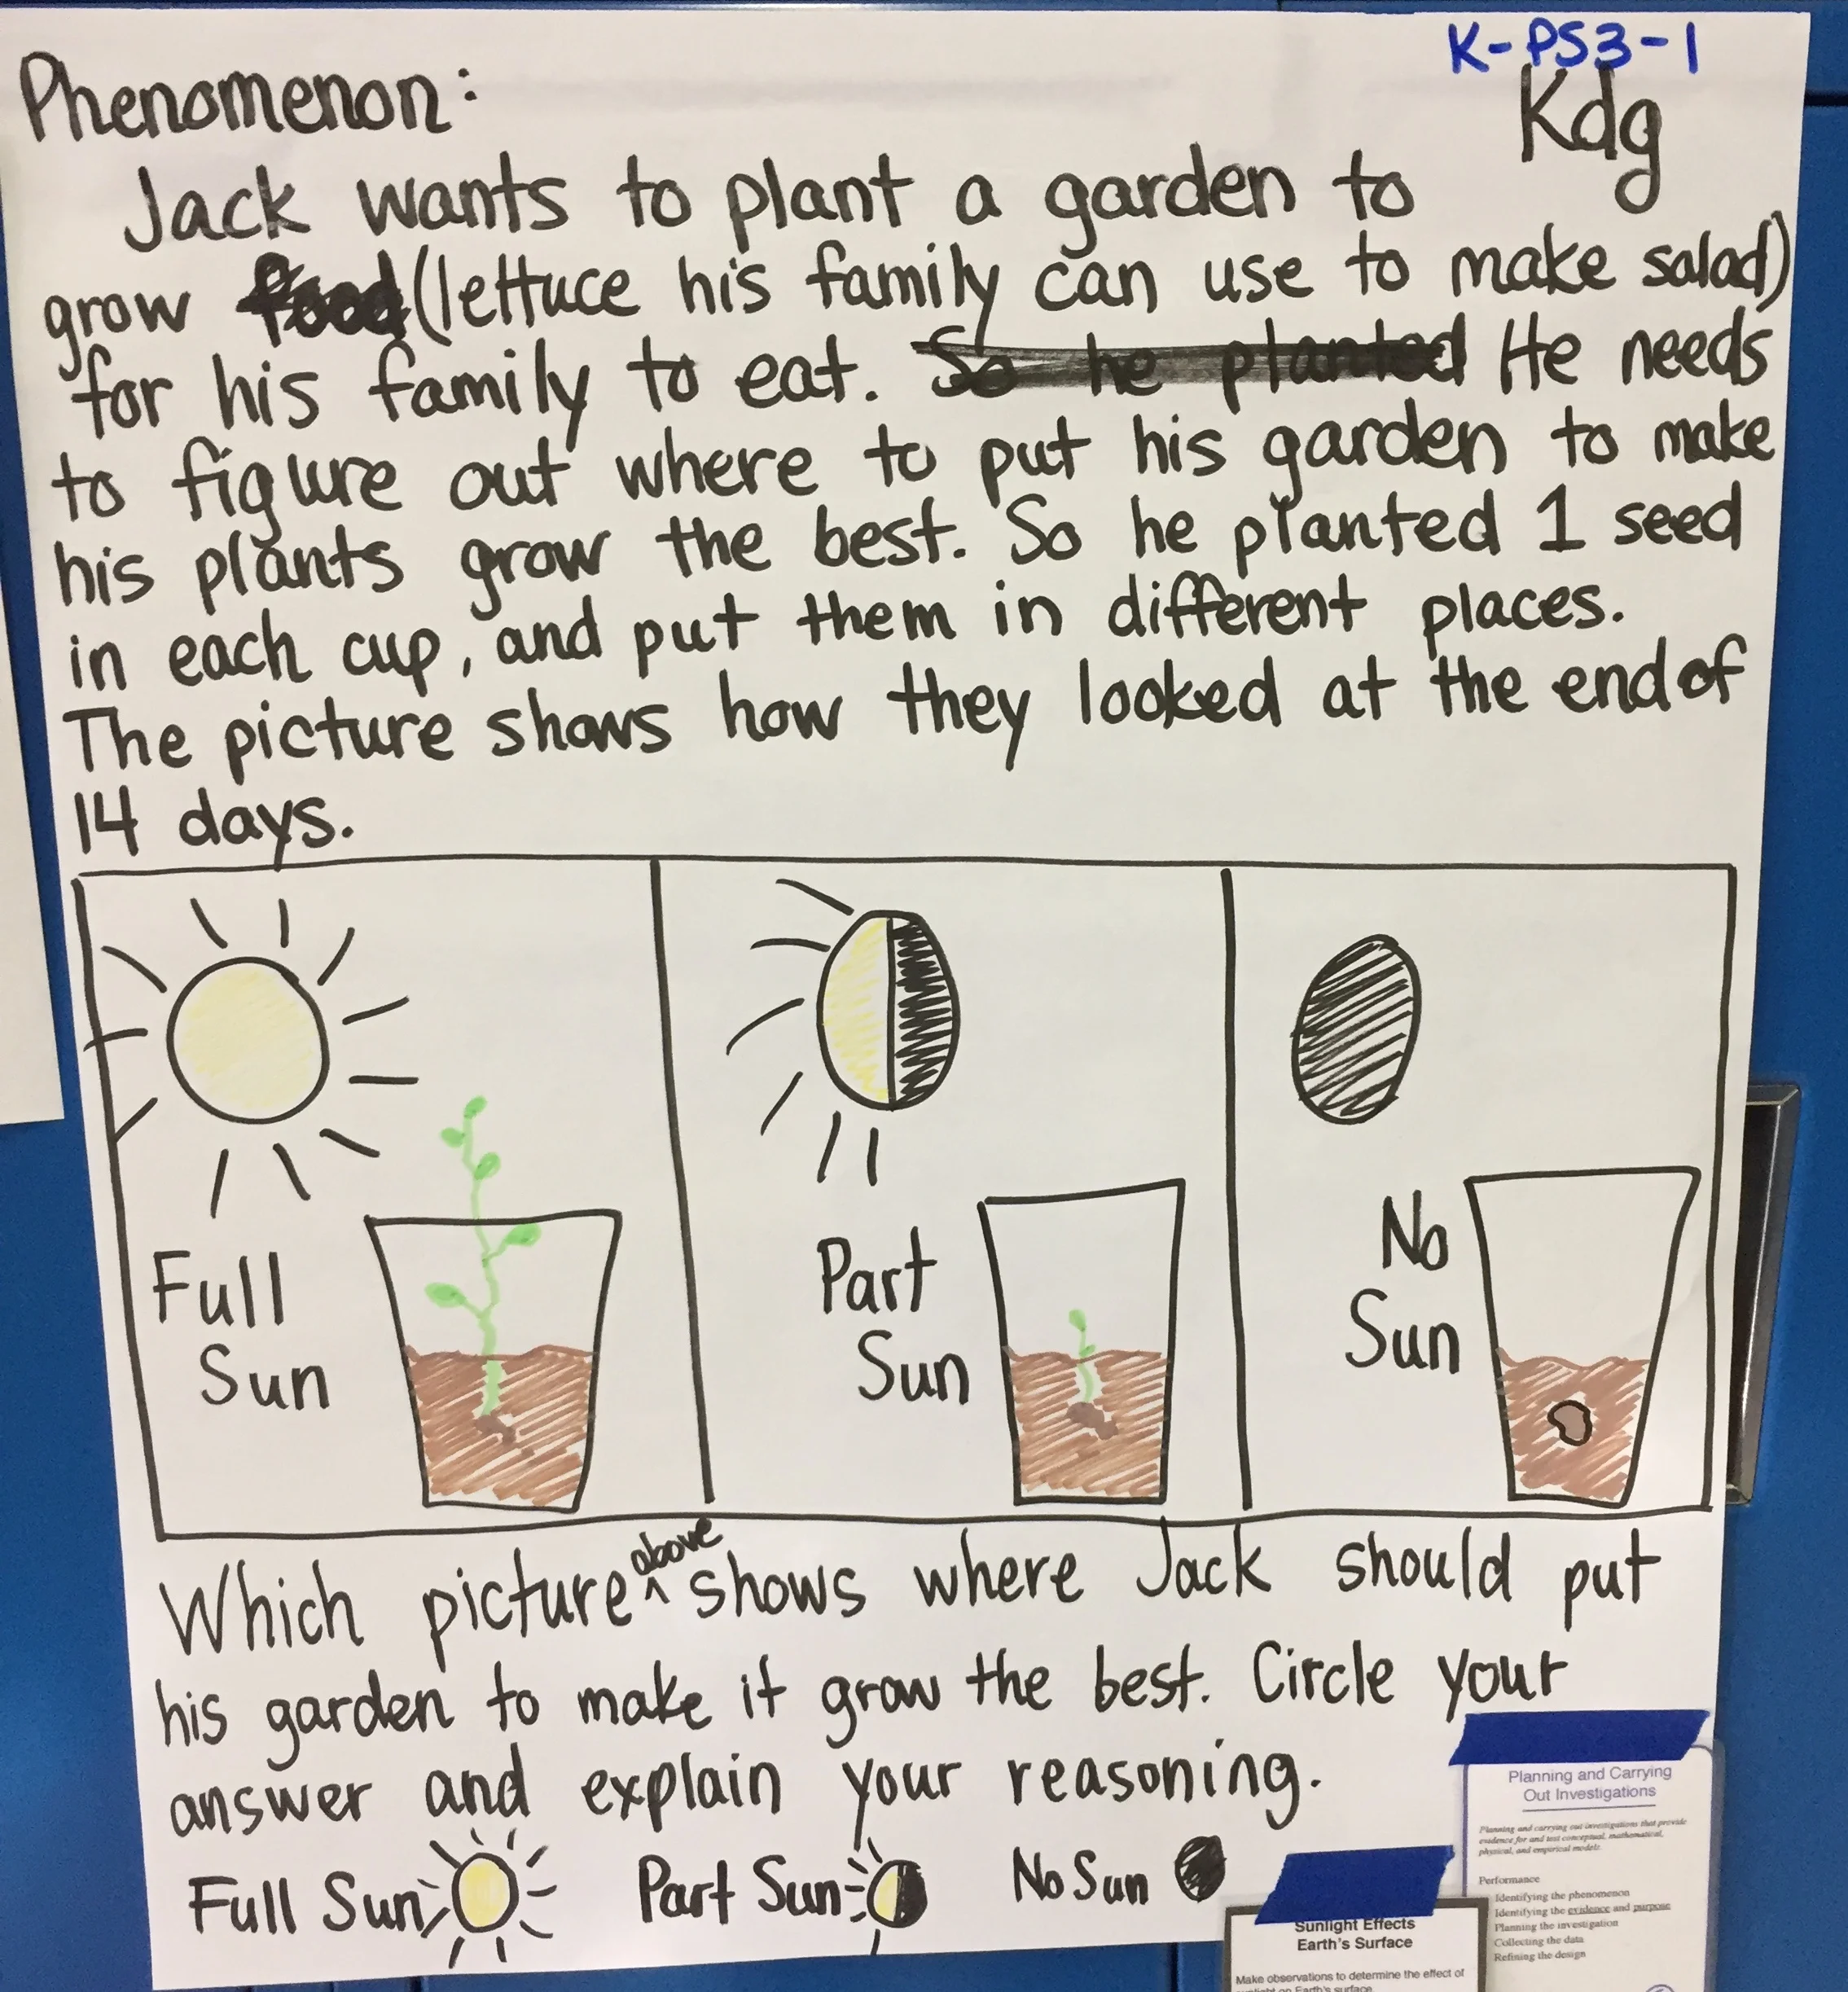 K-PS3-1
Phenomenon:
Kdg
Jack wants to plant a garden to
grow food (lettuce his family can use to make salad)
for his family to eat. So he planted He needs
to figure out where to put his garden to make
his plants grow the best. So he planted 1 seed
in each cup, and put them in different places.
The picture shows how they looked at the end of
14 days.
Full
Sun
Part
Sun
No
Sun
Which picture above shows where Jack should put
his garden to make it grow the best. Circle your
answer and explain your reasoning.
Full Sun
Part Sun
No Sun
Planning and Carrying
Out Investigations
Planning and carrying out investigations that provide
evidence for and test conceptual, mathematical,
physical, and empirical models.
Performance
Identifying the phenomenon
Identifying the evidence and purpose
Planning the investigation
Collecting the data
Refining the design
Sunlight Effects
Earth's Surface
Make observations to determine the effect of
on Earth's surface.